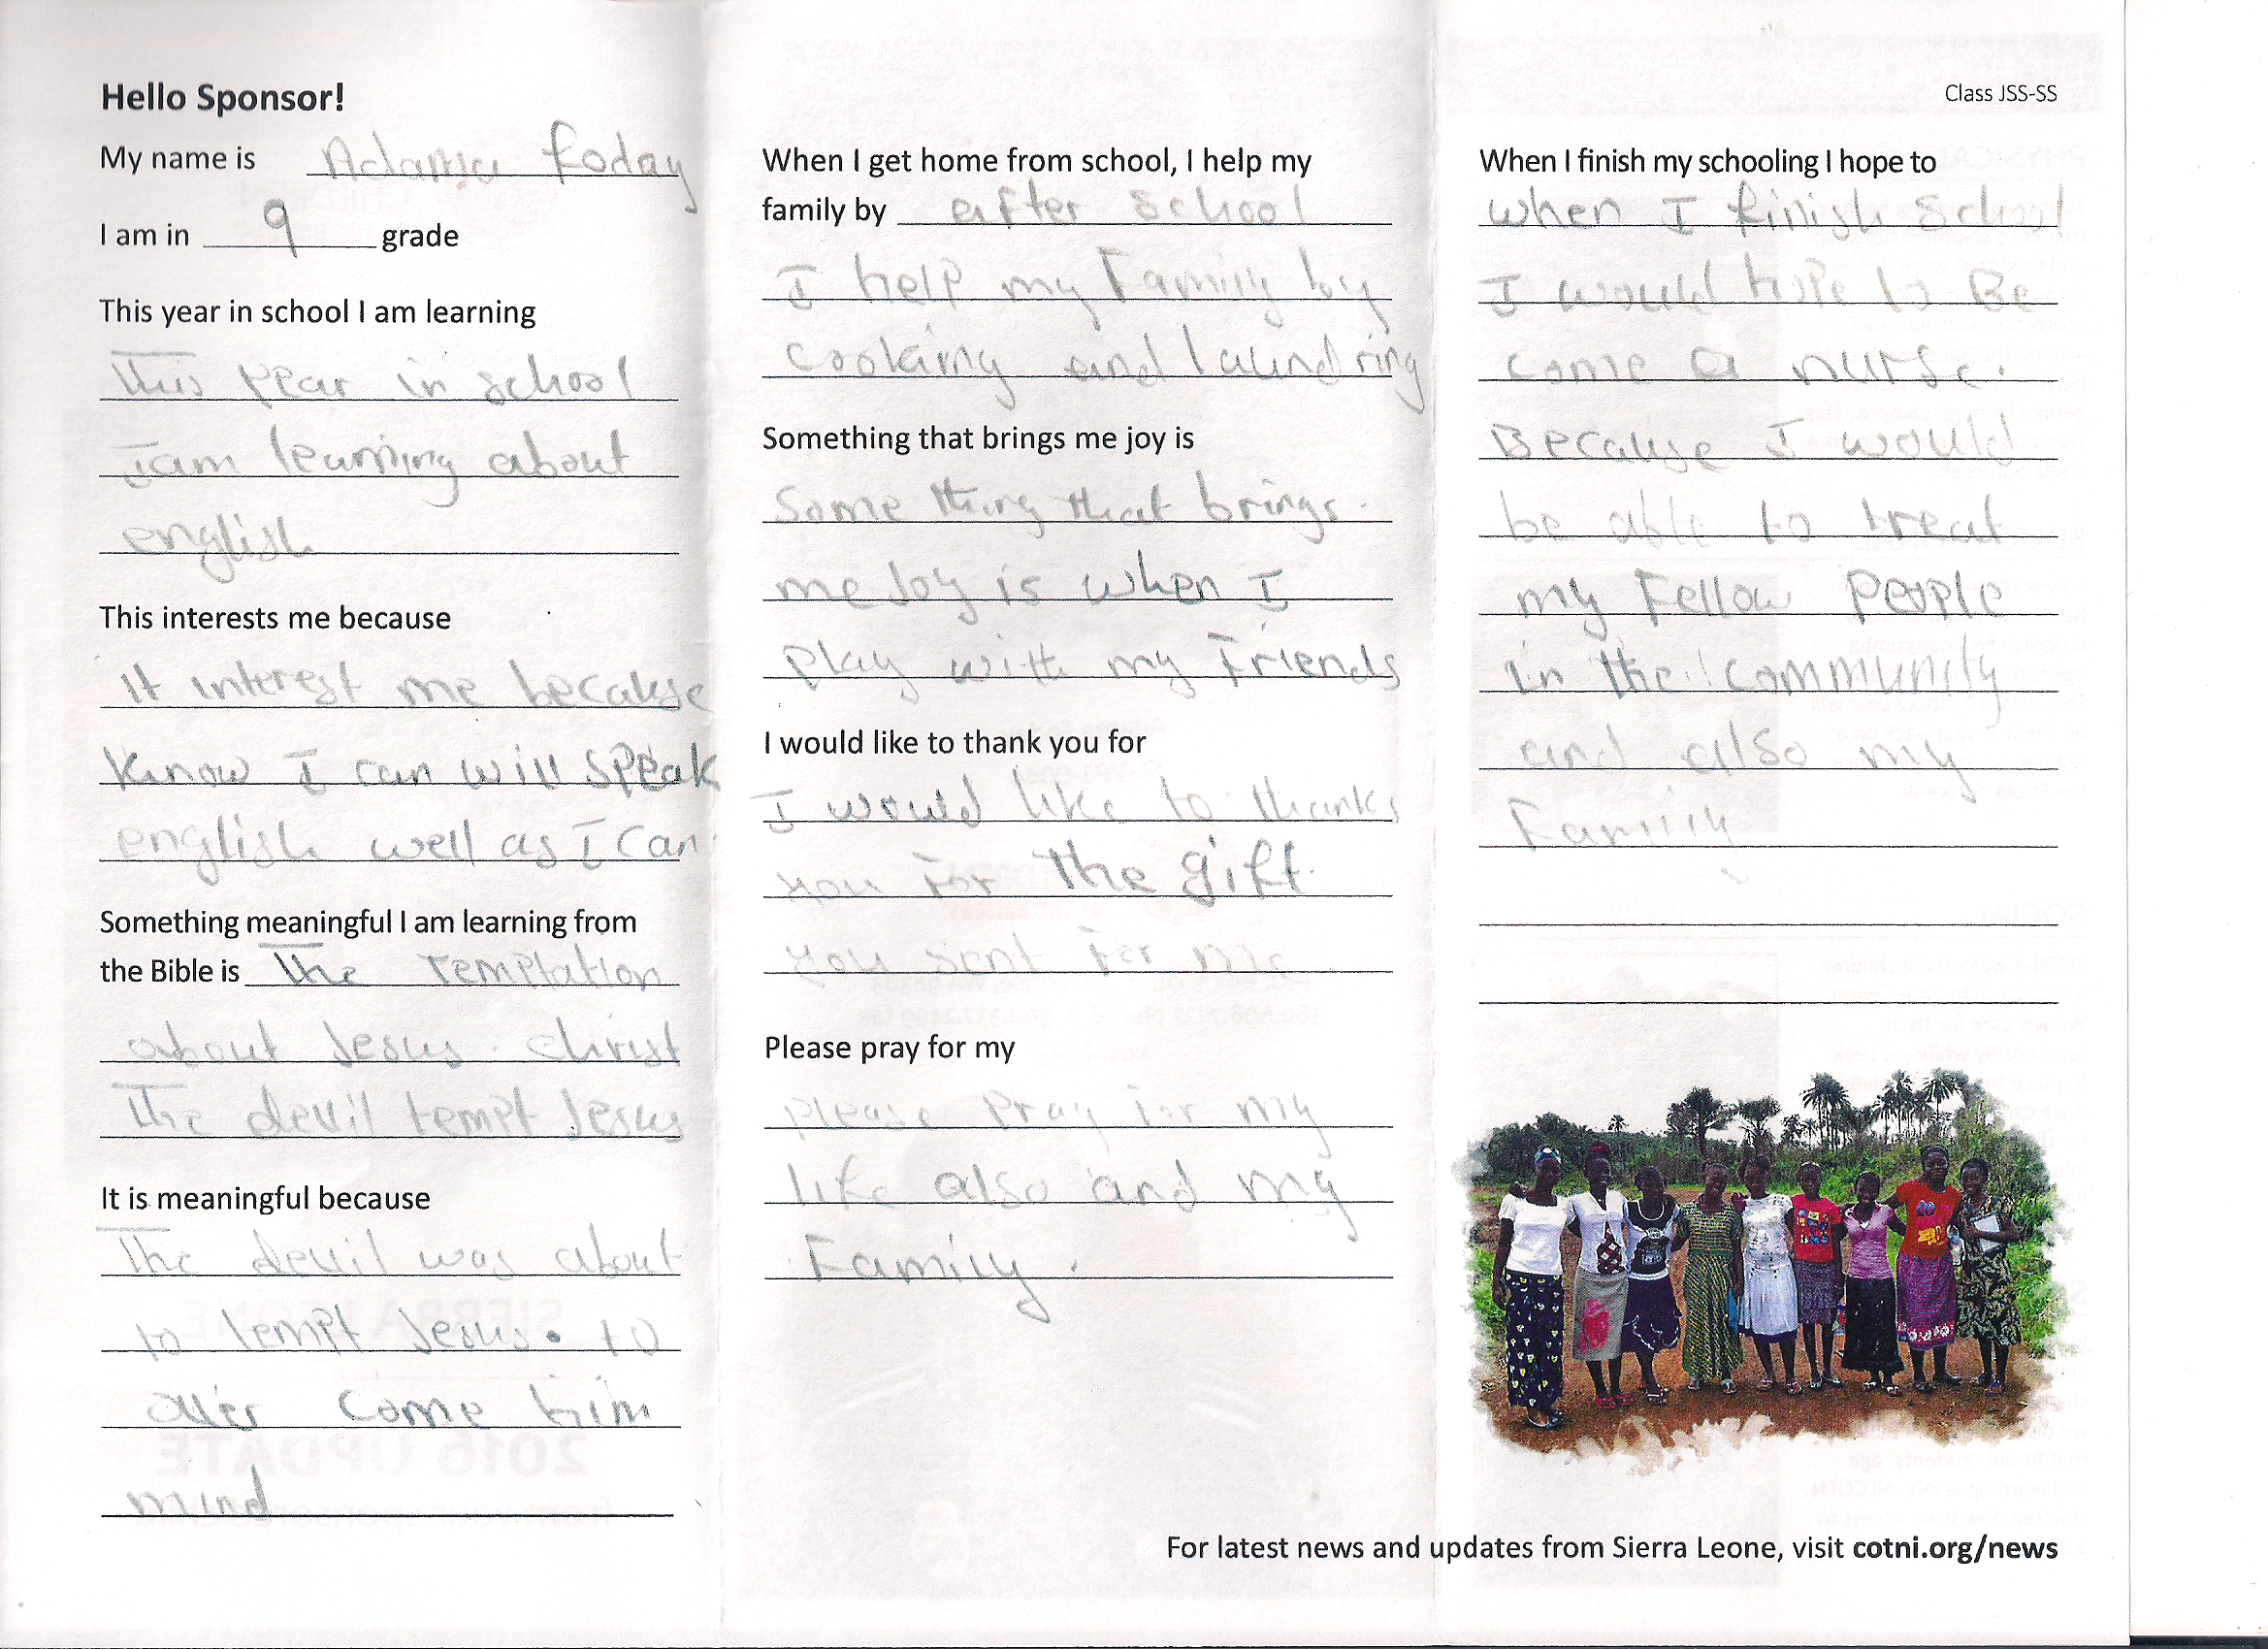 Hello Sponsor!
My name is Adama foday
I am in 9 grade
This year in school I am learning
This year in school
I am learning about
english
This interests me because
It interest me because
know I can will speak
english well as I can
Something meaningful I am learning from
the Bible is The Temptation
about Jesus. christ
The devil tempt Jesus
It is meaningful because
The devil was about
to tempt Jesus. to
over come him
mind
When I get home from school, I help my
family by after school
I help my Family by
cooking and laundring
Something that brings me joy is
Some thing that brings
me Joy is when I
Play with my Friends
I would like to thank you for
I would like to thanks
you For the gift
you sent For me.
Please pray for my
please Pray For my
life also and my
Family.
Class JSS-SS
When I finish my schooling I hope to
when I finish school
I would hope to Be
come a nurse.
Because I would
be able to treat
my Fellow People
in the community
and also my
Family
For latest news and updates from Sierra Leone, visit cotni.org/news